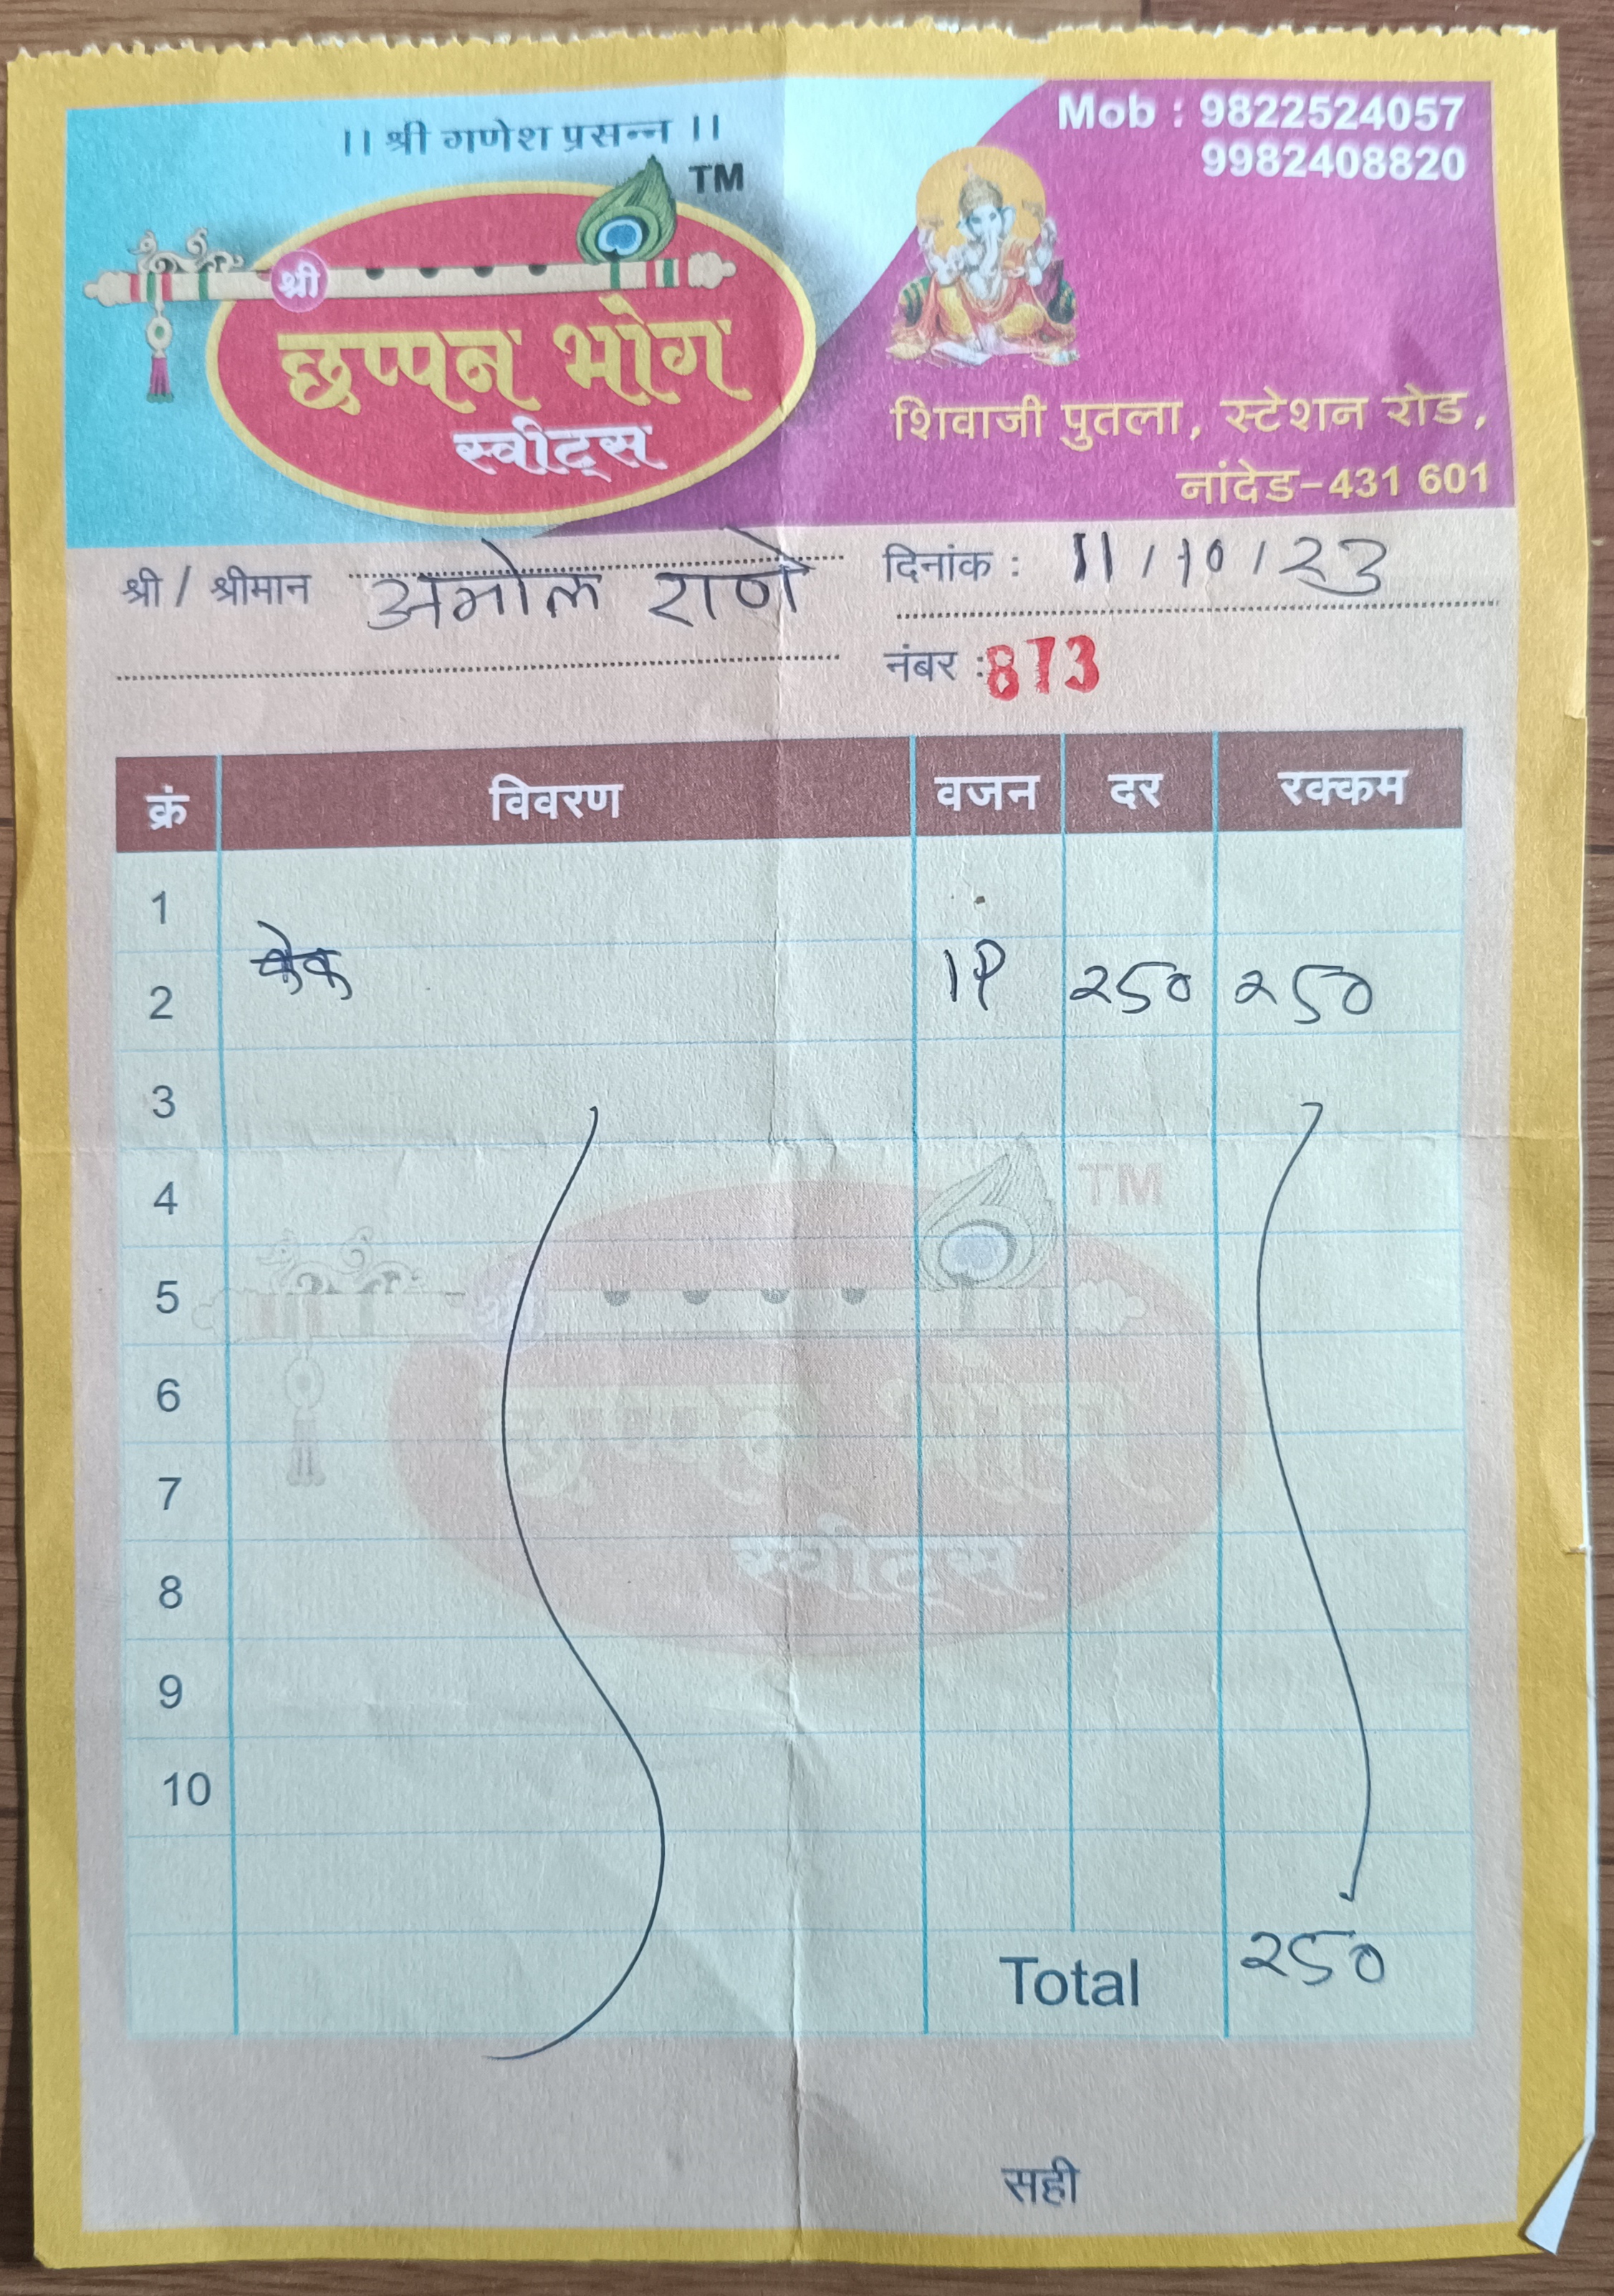 ।। श्री गणेश प्रसन्न ।।
TM
श्री
छप्पन भोग
स्वीट्स
Mob : 9822524057
9982408820
शिवाजी पुतला, स्टेशन रोड,
नांदेड-431 601
श्री / श्रीमान अमोल राणे
दिनांक : 11/10/23
नंबर : 873
क्रं विवरण वजन दर रक्कम
1
2 केक 1P २५० २५०
3
4
5
6
7
8
9
10
TM
श्री
छप्पन भोग
स्वीट्स
Total २५०
सही